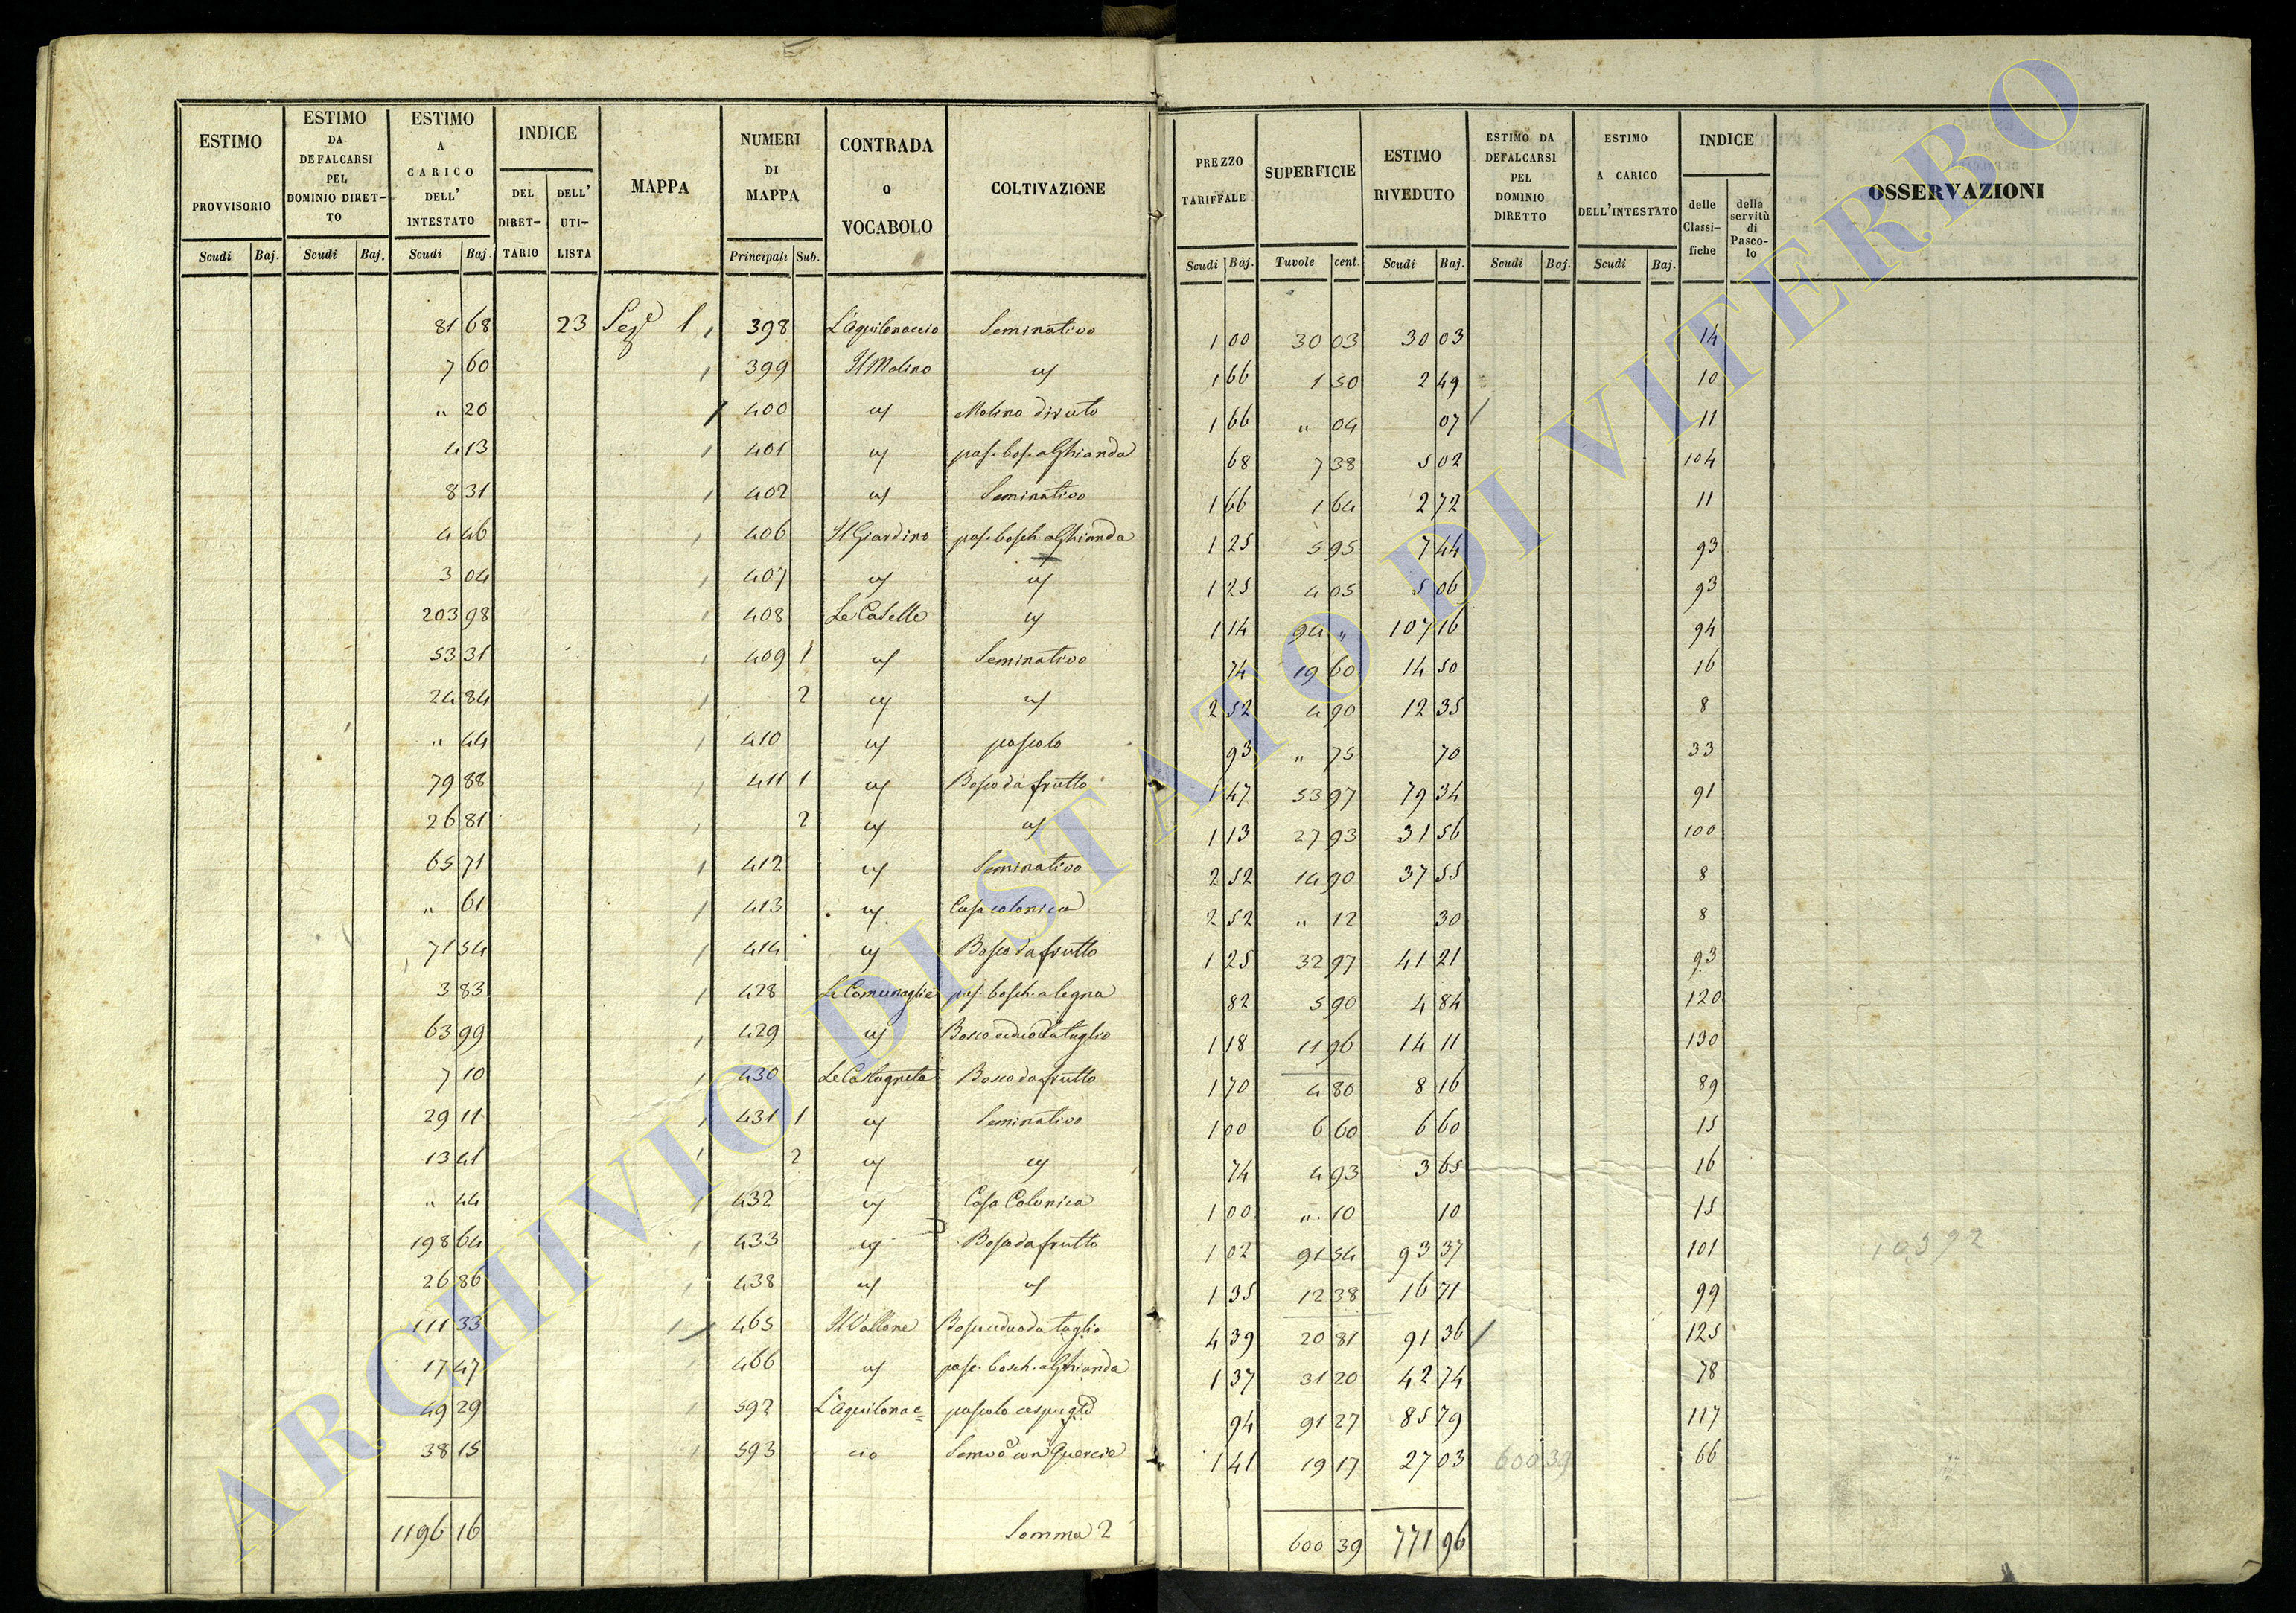 ESTIMO PROVVISORIO Scudi Baj.
ESTIMO DA DEFALCARSI PEL DOMINIO DIRET- TO Scudi Baj.
ESTIMO A CARICO DELL' INTESTATO Scudi Baj.
INDICE DEL DIRET- TARIO DELL' UTI- LISTA
MAPPA
NUMERI DI MAPPA Principali Sub.
CONTRADA o VOCABOLO
COLTIVAZIONE
PREZZO TARIFFALE Scudi Baj.
SUPERFICIE Tuvole cent.
ESTIMO RIVEDUTO Scudi Baj.
ESTIMO DA DEFALCARSI PEL DOMINIO DIRETTO Scudi Baj.
ESTIMO A CARICO DELL'INTESTATO Scudi Baj.
INDICE delle Classi- fiche della servitù di Pasco- lo
OSSERVAZIONI
81 68 23 Sezᵉ 1 398 L'Aquilonaccio Seminativo 1 00 30 03 30 03 14
7 60 399 Il Molino " 1 66 1 50 2 49 10
" 20 400 " Molino diruto 1 66 " 04 07 11
4 13 401 " pas. bos. a Ghianda 68 7 38 5 02 104
8 31 402 " Seminativo 1 66 1 64 2 72 11
4 46 406 Il Giardino pas. bosch. a Ghianda 1 25 5 95 7 44 93
3 04 407 " " 1 25 4 05 5 06 93
203 98 408 Le Caselle " 1 14 94 " 107 16 94
53 31 409 1 " Seminativo 74 19 60 14 50 16
24 84 2 " " 2 52 4 90 12 35 8
" 44 410 " pascolo 93 " 75 70 33
79 88 411 1 " Bosco da frutto 1 47 53 97 79 34 91
26 81 2 " " 1 13 27 93 31 56 100
65 71 412 " Seminativo 2 52 14 90 37 55 8
" 61 413 " Casa colonica 2 52 " 12 30 8
71 54 414 " Bosco da frutto 1 25 32 97 41 21 93
3 83 428 Le Comunaglie pas. bosch. a legna 82 5 90 4 84 120
63 99 429 " Bosco ceduo da taglio 1 18 11 96 14 11 130
7 10 430 Le Castagneta Bosco da frutto 1 70 4 80 8 16 89
29 11 431 1 " Seminativo 1 00 6 60 6 60 15
13 41 2 " " 74 4 93 3 65 16
" 44 432 " Casa Colonica 1 00 " 10 10 15
198 64 433 " Bosco da frutto 1 02 91 54 93 37 101 10392
26 86 438 " " 1 35 12 38 16 71 99
111 33 465 Il Vallone Bosco ceduo da taglio 4 39 20 81 91 36 125
17 47 466 " pasc. bosch. a Ghianda 1 37 31 20 42 74 78
49 29 592 L'Aquilonac= pascolo cespugᵗᵒ 94 91 27 85 79 117
38 15 593 cio Semᵒ con Quercie 1 41 19 17 27 03 600 39 66
1196 16 Somma 2 600 39 771 96
ARCHIVIO DI STATO DI VITERBO